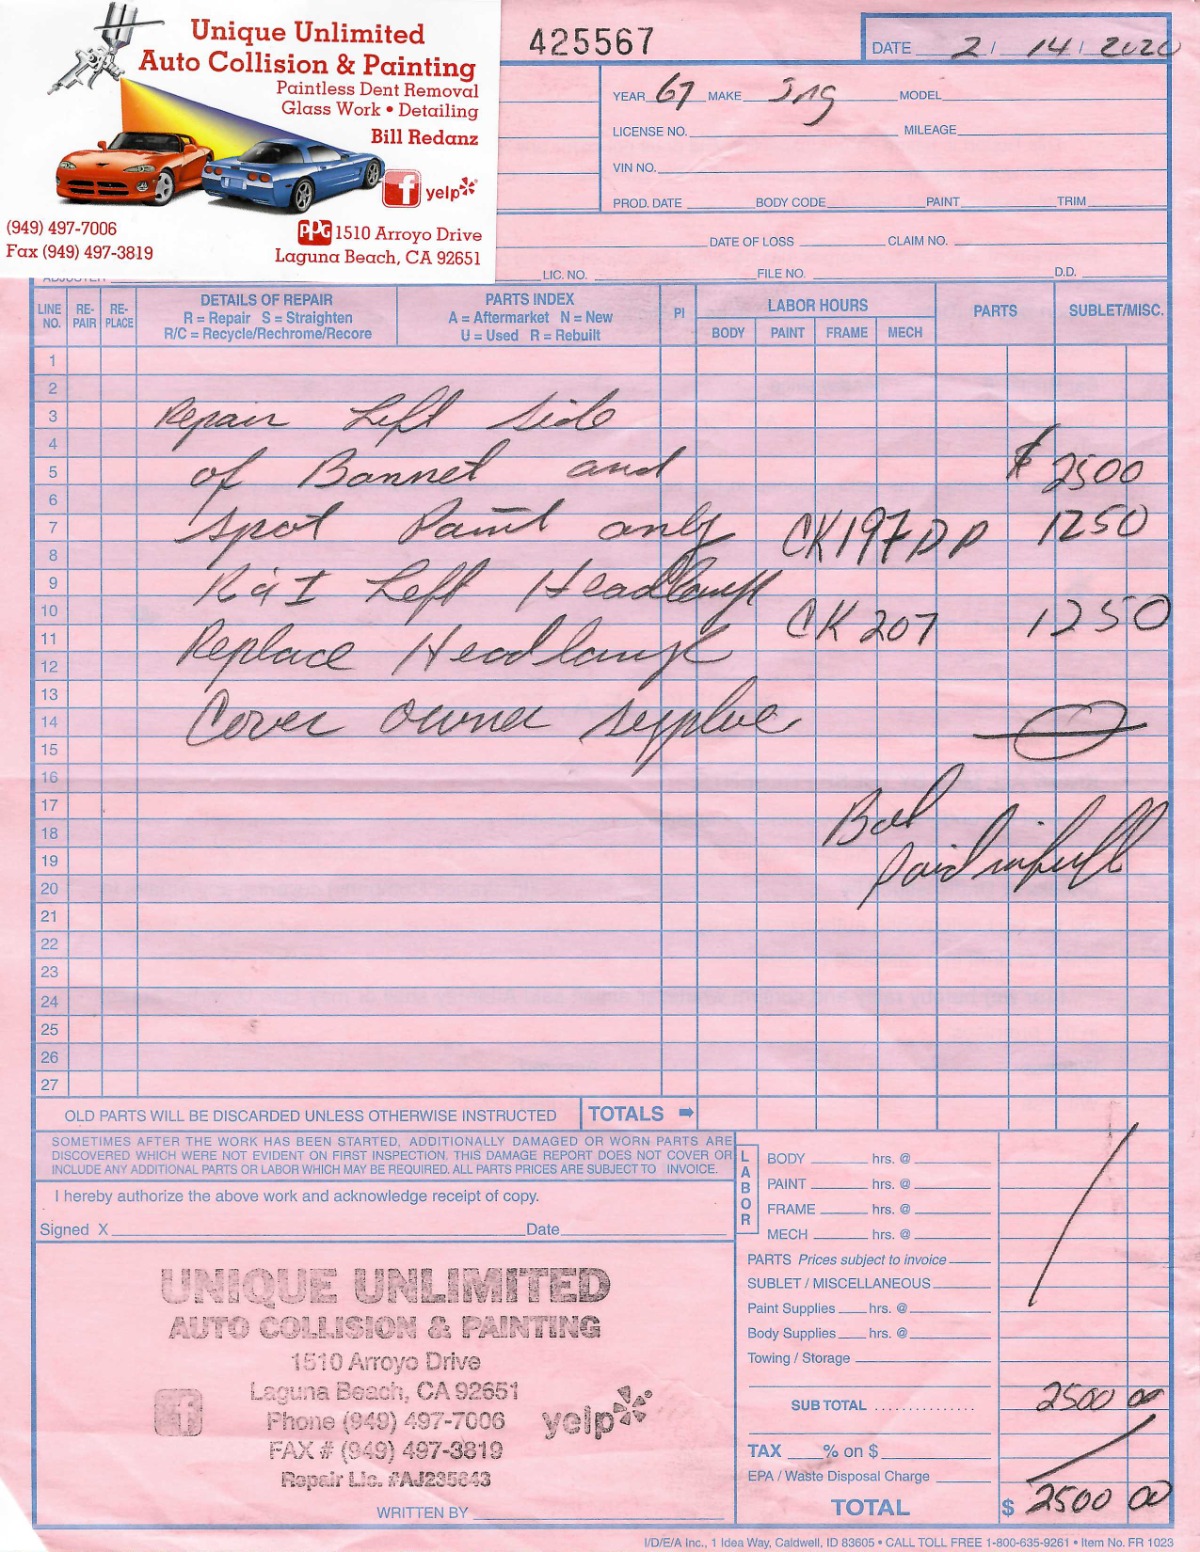 Unique Unlimited
Auto Collision & Painting
Paintless Dent Removal
Glass Work • Detailing
Bill Redanz
f yelp
(949) 497-7006
Fax (949) 497-3819
PPG 1510 Arroyo Drive
Laguna Beach, CA 92651
425567
DATE 2 / 14 / 2020
YEAR 67 MAKE Jag MODEL
LICENSE NO. MILEAGE
VIN NO.
PROD. DATE BODY CODE PAINT TRIM
DATE OF LOSS CLAIM NO.
ADJUSTER LIC. NO. FILE NO. D.D.
LINE NO. RE-PAIR RE-PLACE
DETAILS OF REPAIR
R = Repair S = Straighten
R/C = Recycle/Rechrome/Recore
PARTS INDEX
A = Aftermarket N = New
U = Used R = Rebuilt
PI
LABOR HOURS
BODY PAINT FRAME MECH
PARTS
SUBLET/MISC.
1
2
3
4
5
6
7
8
9
10
11
12
13
14
15
16
17
18
19
20
21
22
23
24
25
26
27
Repair Left side
of Bonnet and $ 2500
spot Paint only CK197DD 1250
R & I Left Headlamp
Replace Headlamp CK 207 1250
Cover owner supplie
Bal
paid in full
OLD PARTS WILL BE DISCARDED UNLESS OTHERWISE INSTRUCTED
TOTALS ➡
SOMETIMES AFTER THE WORK HAS BEEN STARTED, ADDITIONALLY DAMAGED OR WORN PARTS ARE
DISCOVERED WHICH WERE NOT EVIDENT ON FIRST INSPECTION. THIS DAMAGE REPORT DOES NOT COVER OR
INCLUDE ANY ADDITIONAL PARTS OR LABOR WHICH MAY BE REQUIRED. ALL PARTS PRICES ARE SUBJECT TO INVOICE.
I hereby authorize the above work and acknowledge receipt of copy.
Signed X Date
LABOR
BODY hrs. @
PAINT hrs. @
FRAME hrs. @
MECH hrs. @
PARTS Prices subject to invoice
SUBLET / MISCELLANEOUS
Paint Supplies hrs. @
Body Supplies hrs. @
Towing / Storage
SUB TOTAL 2500 00
TAX % on $
EPA / Waste Disposal Charge
TOTAL $ 2500 00
UNIQUE UNLIMITED
AUTO COLLISION & PAINTING
1510 Arroyo Drive
Laguna Beach, CA 92651
f Phone (949) 497-7006 yelp
FAX # (949) 497-3819
Repair Lic. #AJ235643
WRITTEN BY
I/D/E/A Inc., 1 Idea Way, Caldwell, ID 83605 • CALL TOLL FREE 1-800-635-9261 • Item No. FR 1023